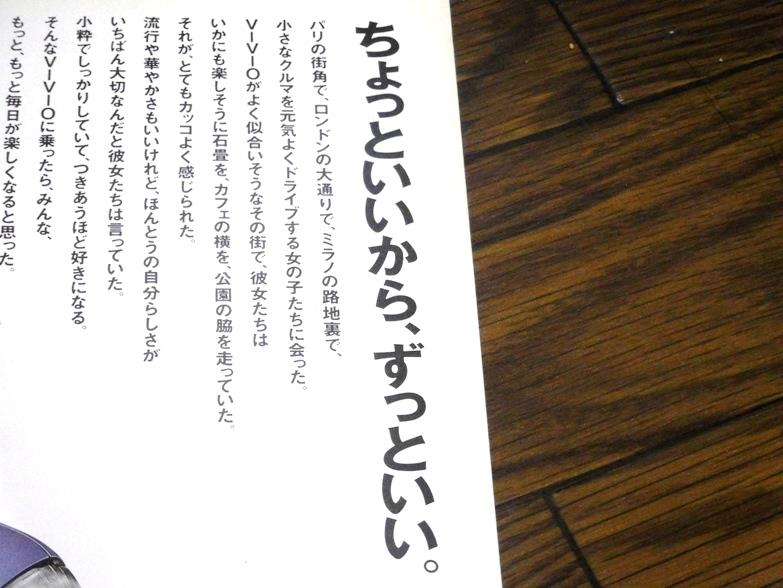 ちょっといいから、ずっといい。
パリの街角で、ロンドンの大通りで、ミラノの路地裏で、
小さなクルマを元気よくドライブする女の子たちに会った。
VIVIOがよく似合いそうなその街で、彼女たちは
いかにも楽しそうに石畳を、カフェの横を、公園の脇を走っていた。
それが、とてもカッコよく感じられた。
流行や華やかさもいいけれど、ほんとうの自分らしさが
いちばん大切なんだと彼女たちは言っていた。
小粋でしっかりしていて、つきあうほど好きになる。
そんなVIVIOに乗ったら、みんな、
もっと、もっと毎日が楽しくなると思った。